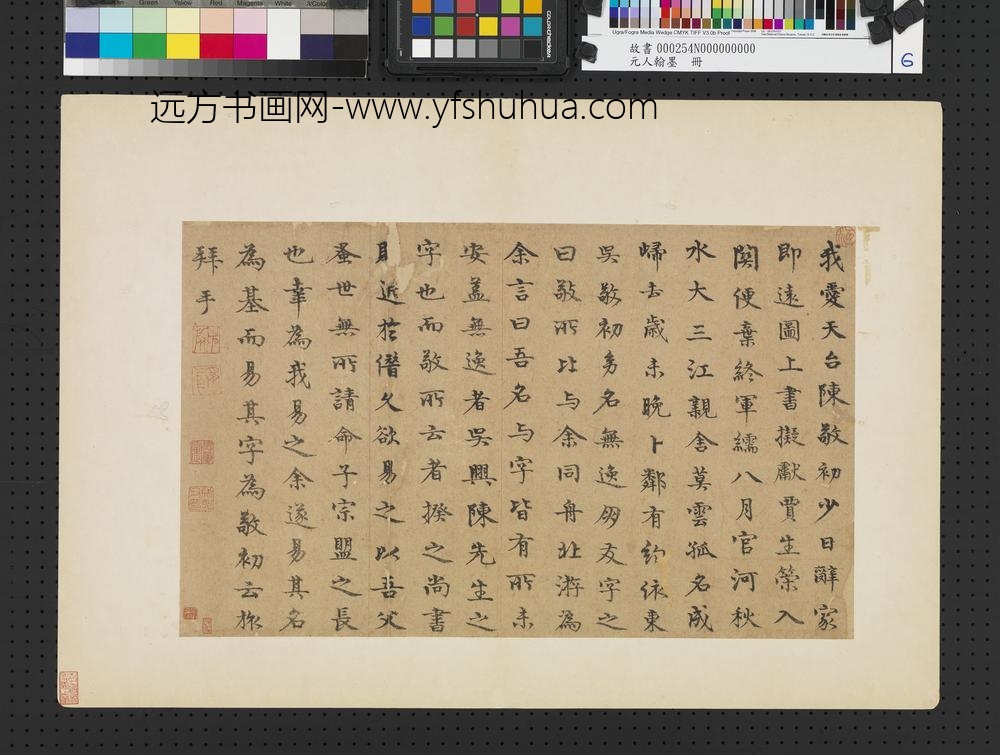 Red
Magenta
White
Ugra/Fogra Media Wedge CMYK TIFF V3.0b Proof
colorchecker
故書 000254N000000000
元人翰墨 冊
6
远方书画网-www.yfshuhua.com
我愛天台陳敬初少日辭家
即遠圖上書擬獻賈生策入
関便棄終軍繻八月官河秋
水大三江親舍莫雲孤名成
歸去歲未晚卜鄰有約依東
吳敬初多名無逸朋友字之
曰敬所比与余同舟北游為
余言曰吾名与字皆有所未
安蓋無逸者吳興陳先生之
字也而敬所云者揆之尚書
則近於僭久欲易之以吾父
蚤世無所請命子宗盟之長
也幸為我易之余遂易其名
為基而易其字為敬初云旅
拜手